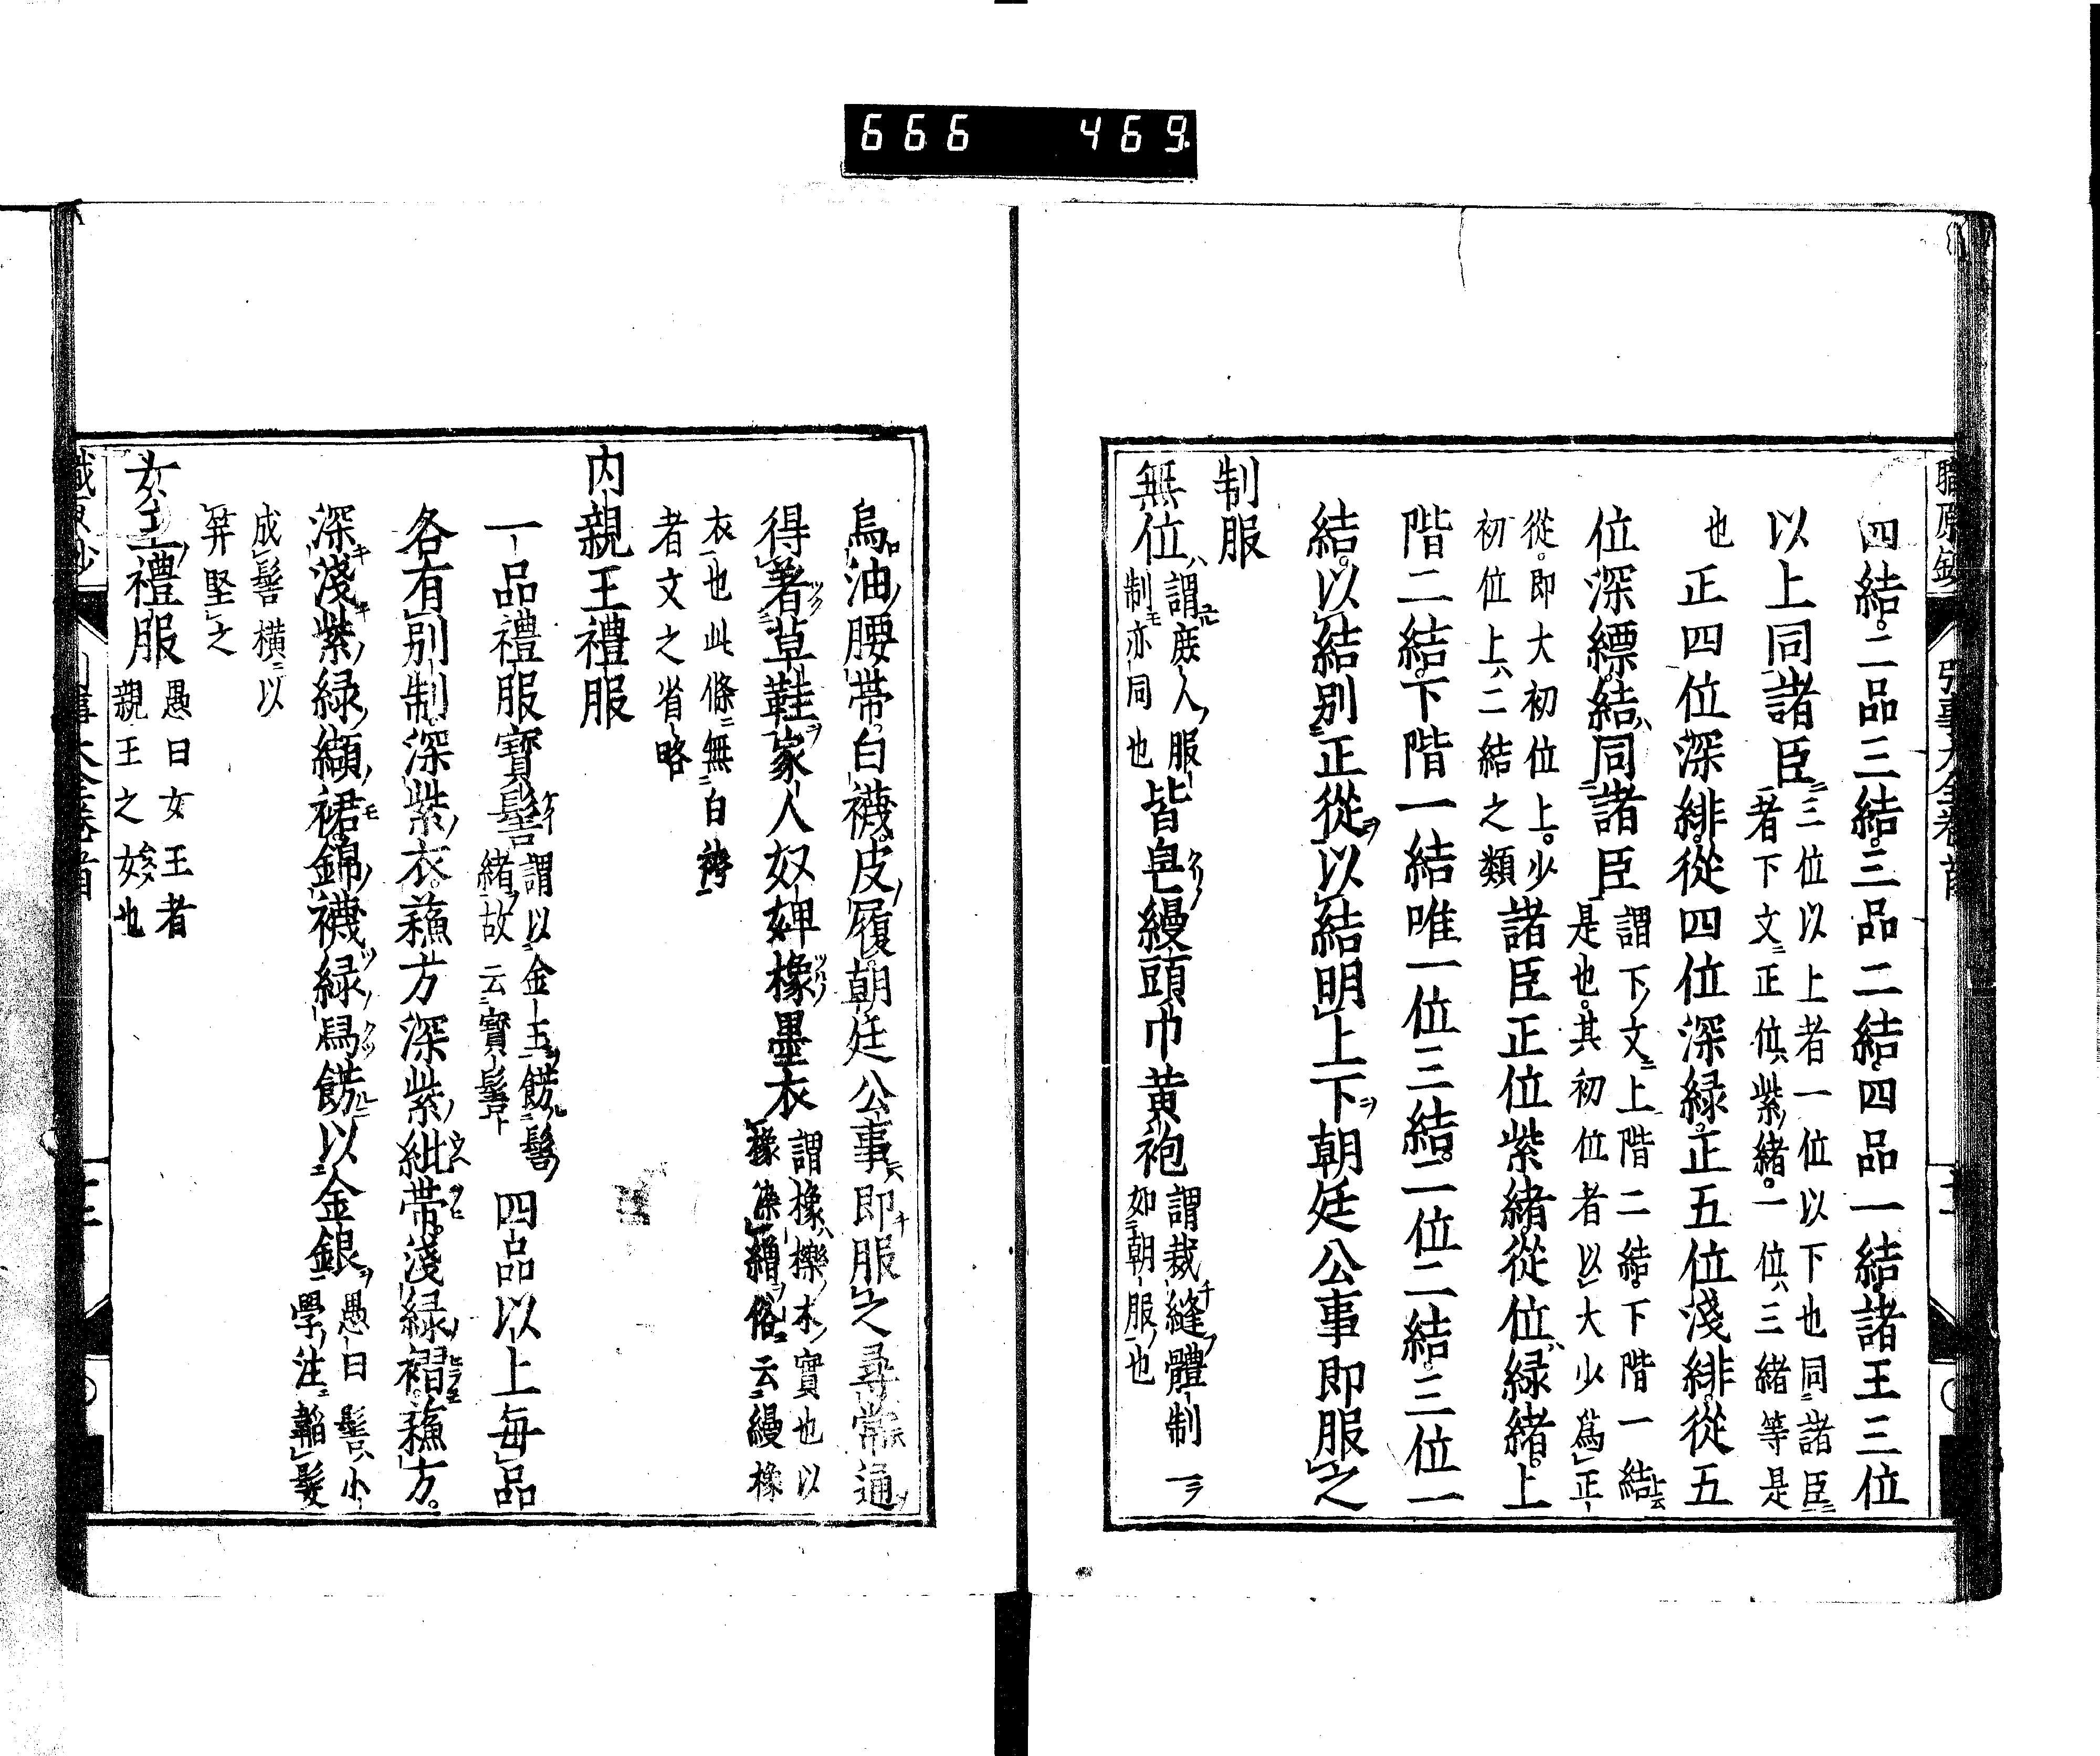 666 469
職原鈔 引事大全卷首
四結。二品三結。三品二結。四品一結諸王三位
以上同諸臣三位以上者一位以下也同諸臣
者下文正位紫緒。一位三緒等是
也正四位深緋。從四位深綠。正五位淺緋。從五
位深縹。結同諸臣謂下文上階二結。下階一結
是也。其初位者以大少爲正
從。即大初位上。少
初位上二結之類諸臣正位紫緒從位綠緒。上
階二結。下階一結唯一位三結。二位二結。三位一
結。以結別正從以結明上下朝廷公事即服之
制服
無位謂庶人服
制亦同也皆皂縵頭巾黄袍謂裁縫體制一
如朝服也
烏油腰帶。白襪。皮履。朝廷公事即服之尋常通
得著草鞋家人奴婢橡墨衣謂橡櫟木實也以
橡染繒俗云縵橡
衣也此條無白袴
者文之省略
内親王禮服
一品禮服寶髻謂以金玉餝髻
緒故云寶髻四品以上每品
各有別制。深紫衣。蘓方深紫紕帶。淺綠褶。蘓方。
深淺紫綠纈裙。錦襪綠舄餝以金銀愚曰髻小
學注韜髮
成髻橫以
笄堅之
女王禮服愚曰女王者
親王之女也